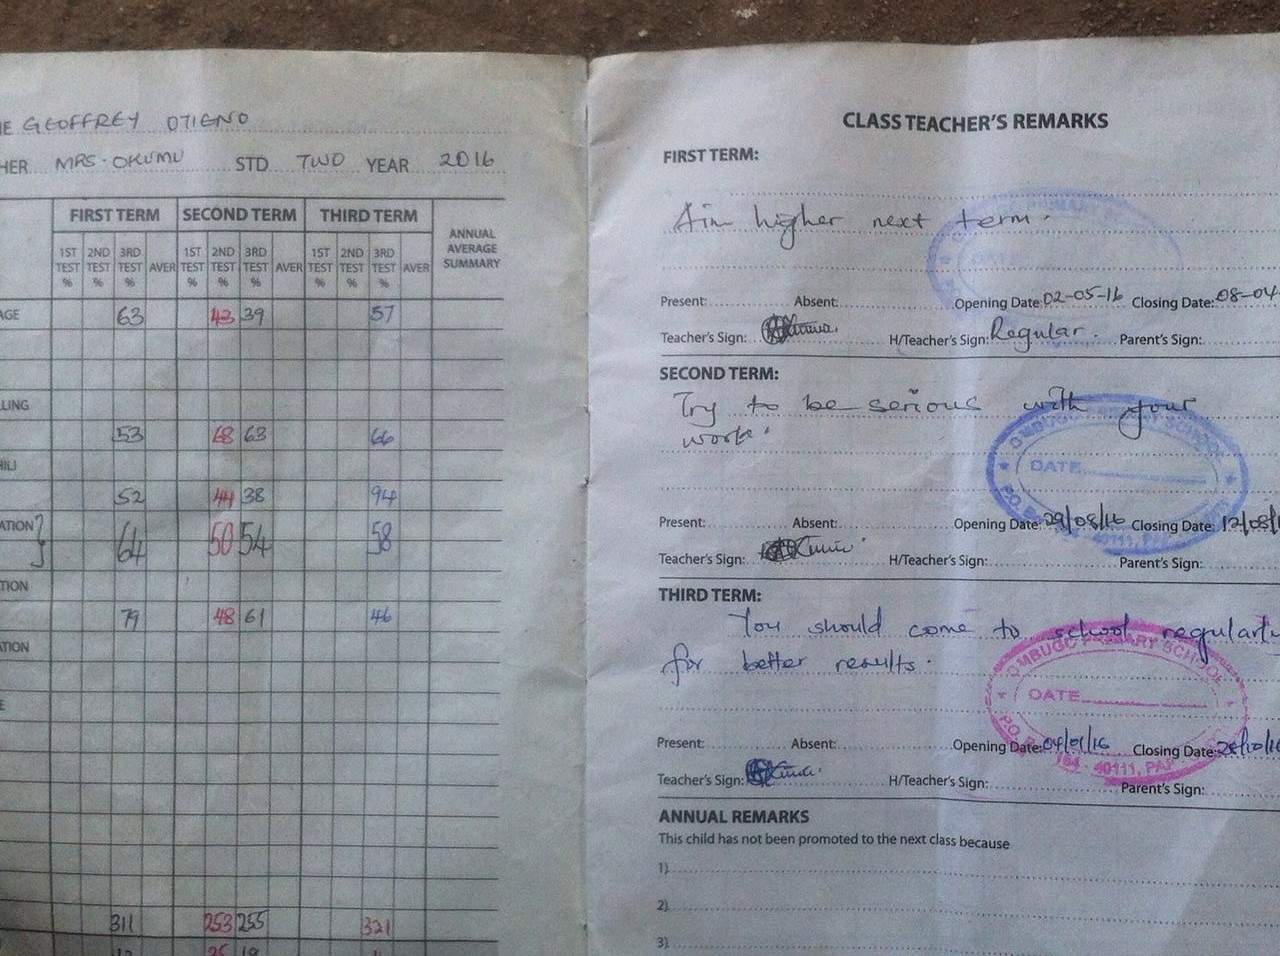 GEOFFREY OTIENO
MRS. OKUMU STD TWO YEAR 2016
FIRST TERM SECOND TERM THIRD TERM ANNUAL AVERAGE SUMMARY
1ST TEST % 2ND TEST % 3RD TEST % AVER 1ST TEST % 2ND TEST % 3RD TEST % AVER 1ST TEST % 2ND TEST % 3RD TEST % AVER
AGE 63 43 39 57
LLING
53 68 63 66
HILI
52 44 38 94
ATION } 64 50 54 58
TION
79 48 61 46
ATION
311 253 255 321
CLASS TEACHER'S REMARKS
FIRST TERM:
Aim higher next term.
Present: Absent: Opening Date: 02-05-16 Closing Date: 08-04-
Teacher's Sign: H/Teacher's Sign: Regular. Parent's Sign:
SECOND TERM:
Try to be serious with your
work.
OMBUGO PRIMARY SCHOOL
DATE
Present: Absent: Opening Date: 29/08/16 Closing Date: 12/08/
40111, PAP
Teacher's Sign: H/Teacher's Sign: Parent's Sign:
THIRD TERM:
You should come to school regularly
for better results.
OMBUGO PRIMARY SCHOOL
DATE
Present: Absent: Opening Date: 04/01/16 Closing Date: 28/10/16
164 - 40111, PAP
Teacher's Sign: H/Teacher's Sign: Parent's Sign:
ANNUAL REMARKS
This child has not been promoted to the next class because
1)
2)
3)